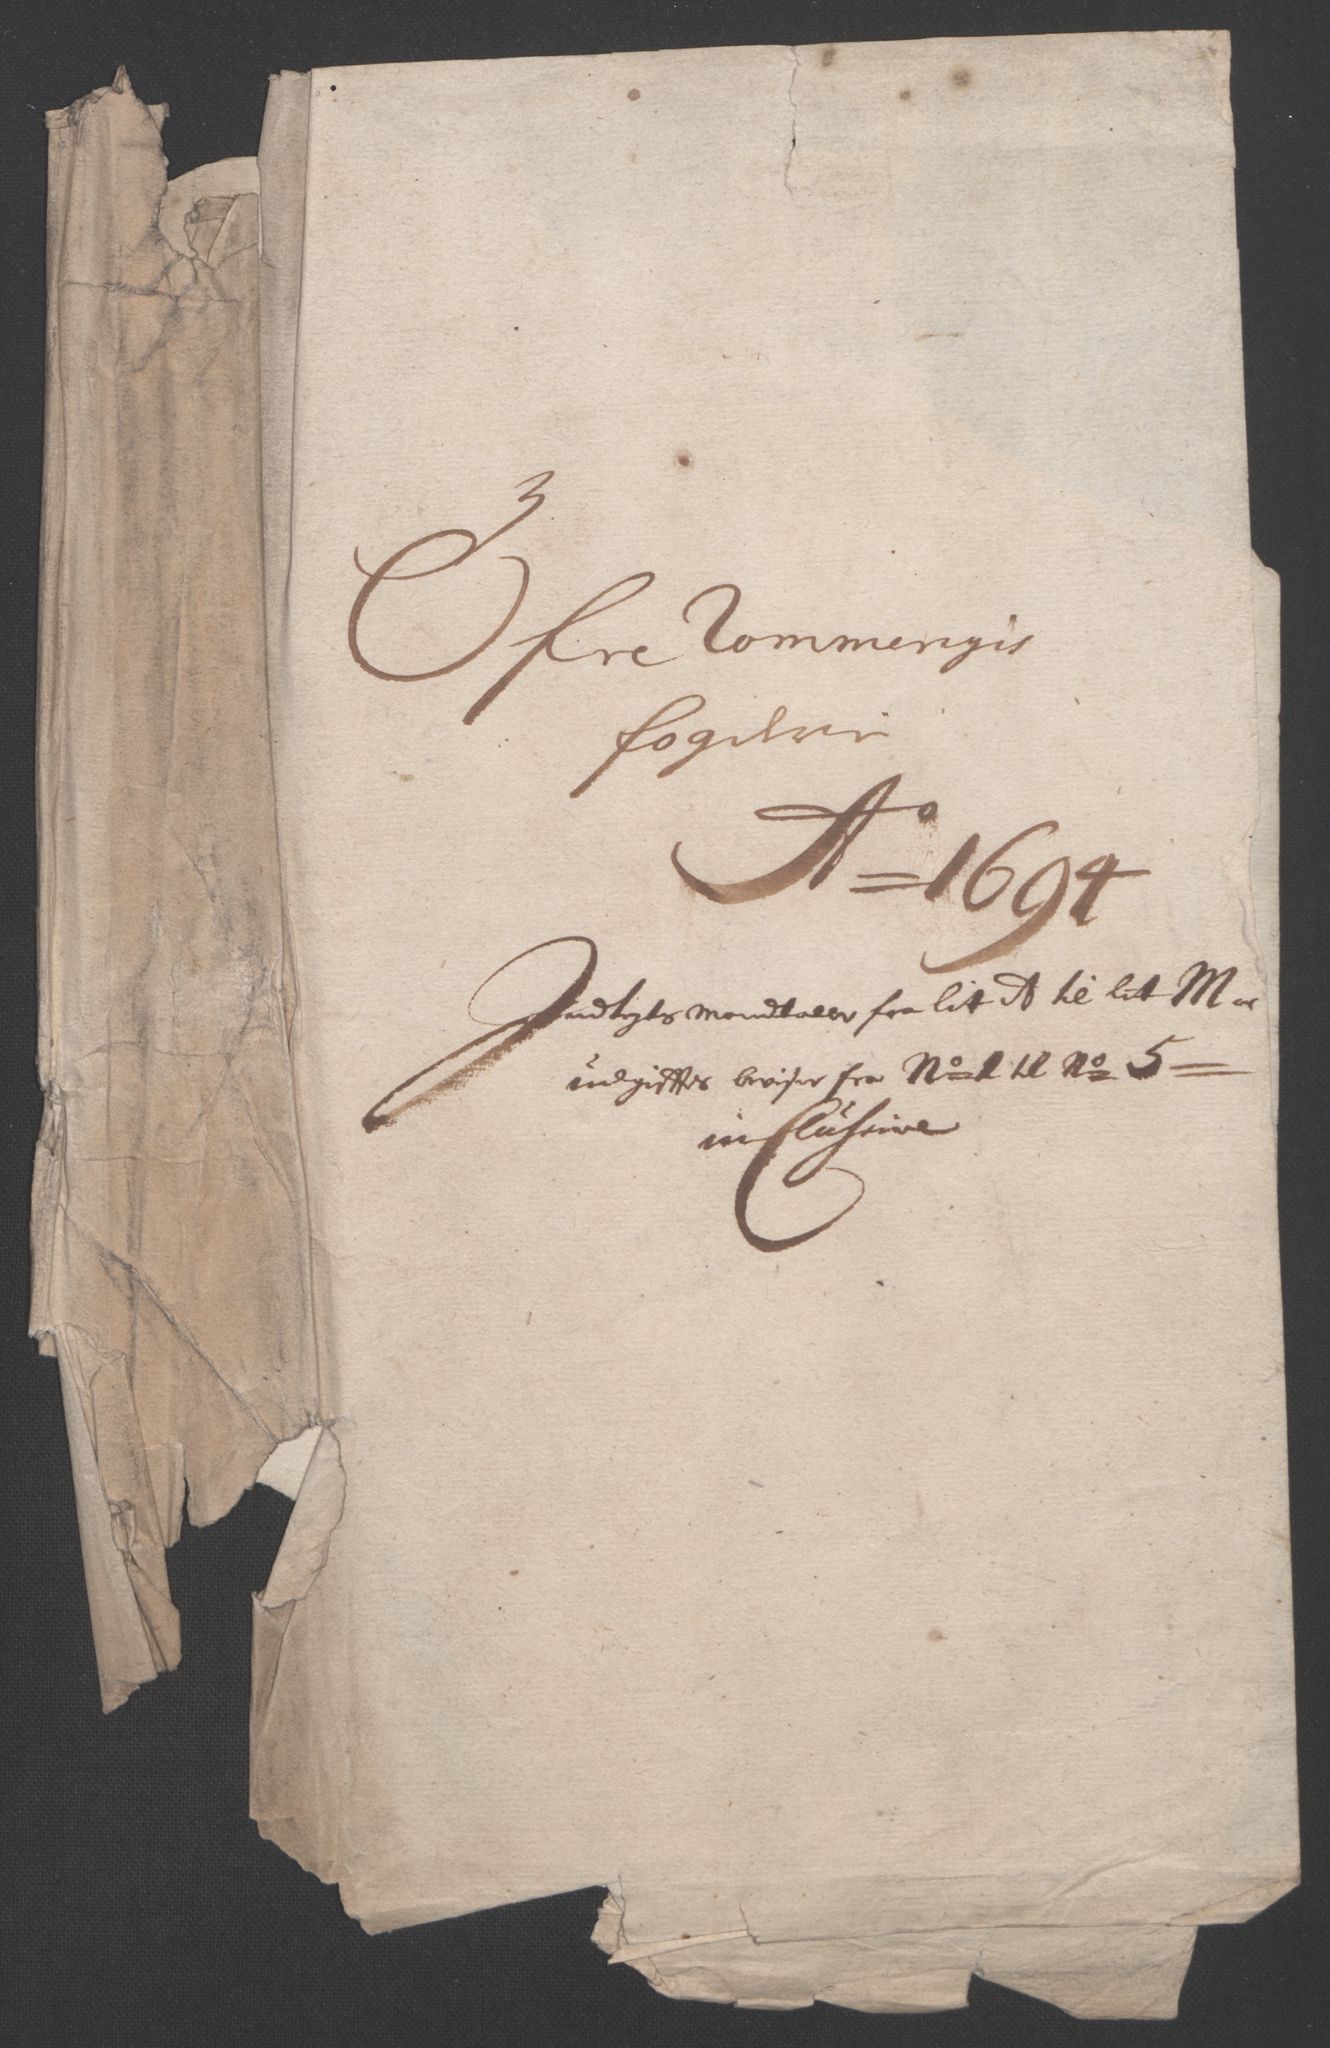 Öfre Rommerigis
fogderi
Ao = 1694
Indtegts mandtaller fra lit A til litt M oc
udgifftis beviser fra No 1 til No 5 =
inclusive